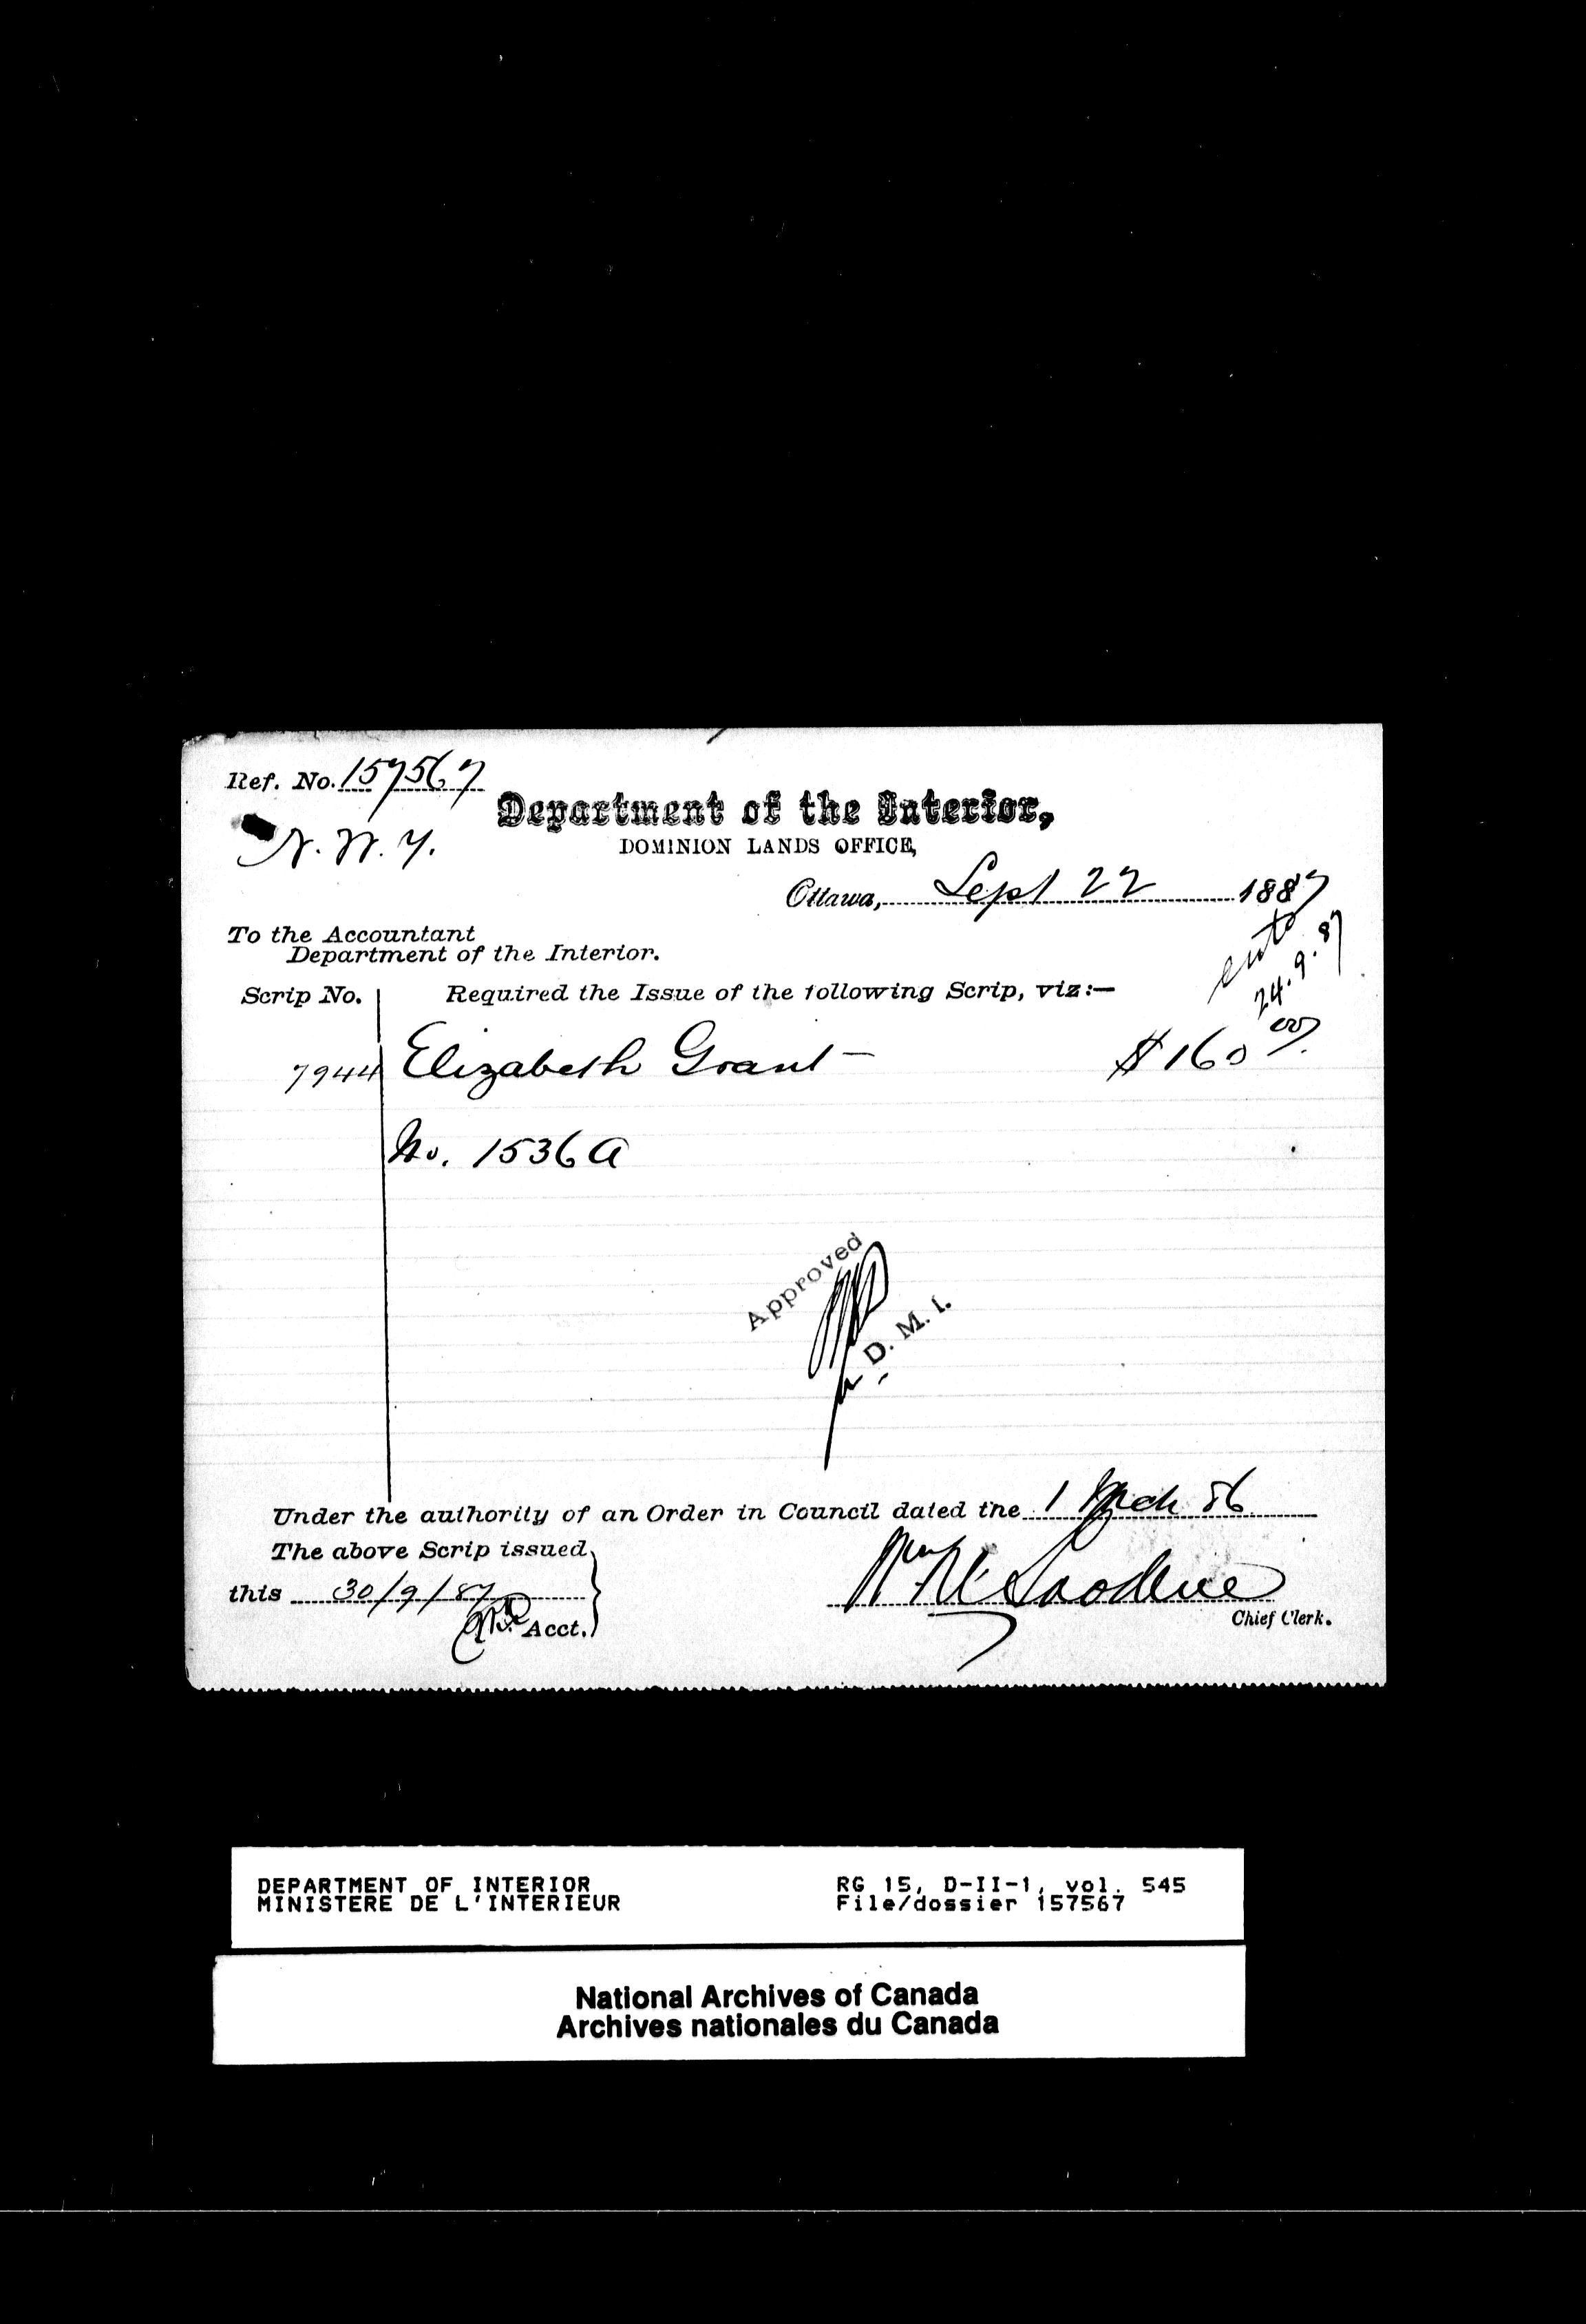 Ref. No. 157567
N. W. T.
Department of the Interior,
DOMINION LANDS OFFICE,
Ottawa, Sept 22 1887
To the Accountant
Department of the Interior.
24.9.87
Scrip No. Required the Issue of the following Scrip, viz:—
7944 Elizabeth Grant — $160 00/.
No. 1536 A
Approved
D. M. I.
Under the authority of an Order in Council dated the 1 Mch 86
The above Scrip issued
this 30/9/87
Acct.
Chief Clerk.
DEPARTMENT OF INTERIOR RG 15, D-II-1, vol. 545
MINISTERE DE L'INTERIEUR File/dossier 157567
National Archives of Canada
Archives nationales du Canada